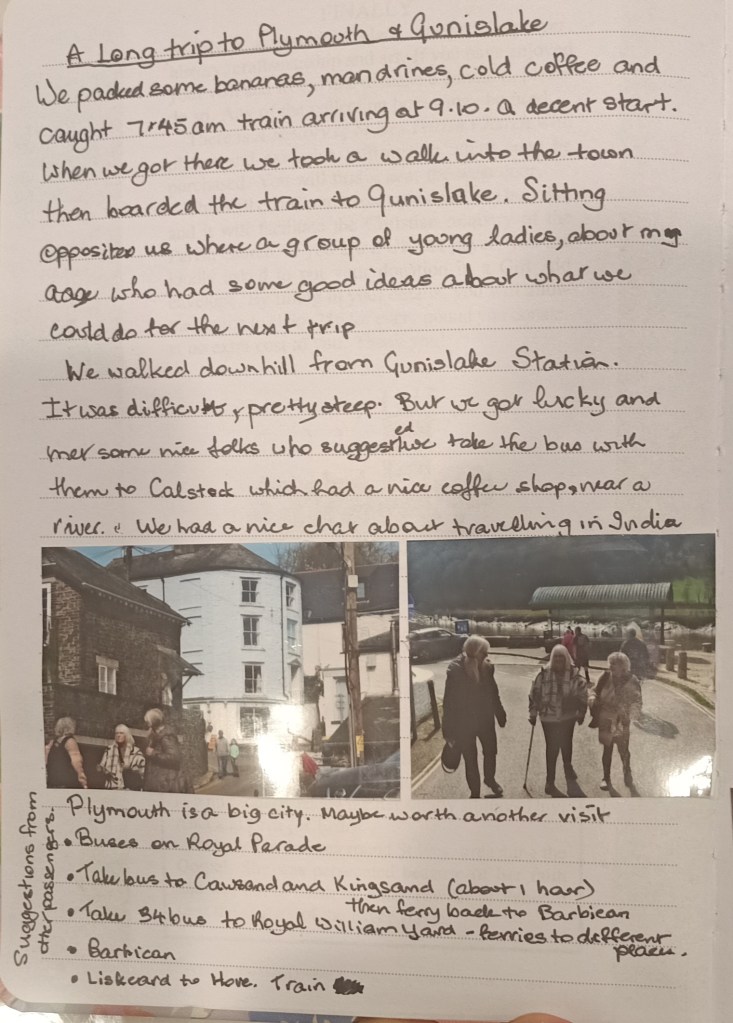 A Long trip to Plymouth & Gunislake
We packed some bananas, mandrines, cold coffee and
caught 7:45 am train arriving at 9.10. a decent start.
when we got there we took a walk into the town
then boarded the train to Gunislake. Sitting
Opposite us where a group of young ladies, about my
age who had some good ideas about what we
could do for the next trip
We walked downhill from Gunislake Station.
It was difficult, pretty steep. But we got lucky and
met some nice folks who suggested we take the bus with
them to Calstock which had a nice coffee shop, near a
river. We had a nice chat about travelling in India
Plymouth is a big city. Maybe worth another visit
Suggestions from
other passengers.
• Buses on Royal Parade
• Take bus to Cawsand and Kingsand (about 1 hour)
then ferry back to Barbican
• Take 34 bus to Royal William Yard - ferries to different
places.
• Barbican
• Liskeard to Hove. Train